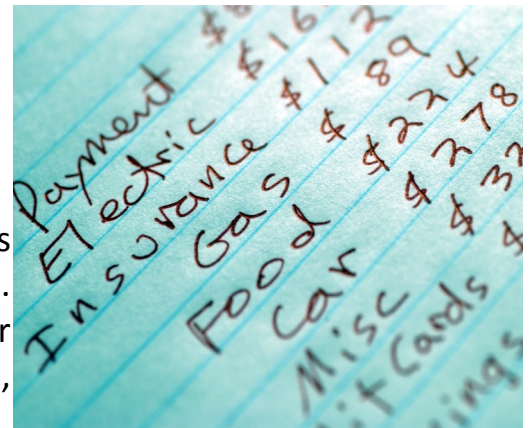 Payment $
Electric $16
Insurance $112
Gas $89
Food $224
Car $278
Misc $32
it Cards $
ings